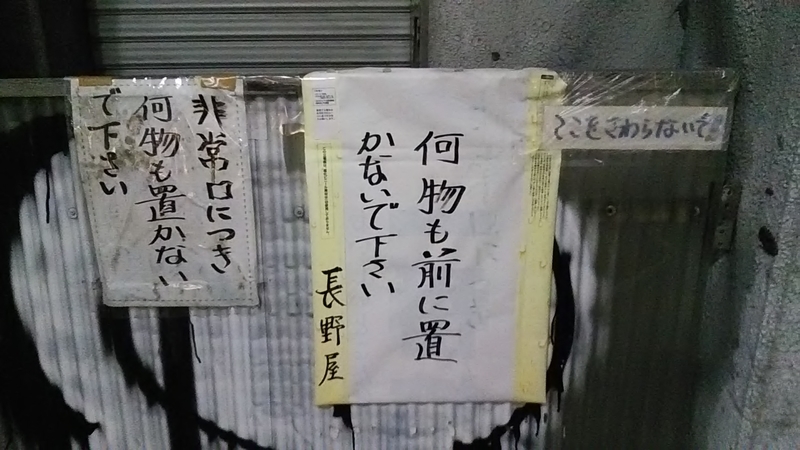 非常口につき
何物も置かない
で下さい
何物も前に置
かないで下さい
長野屋
ここをさわらないで